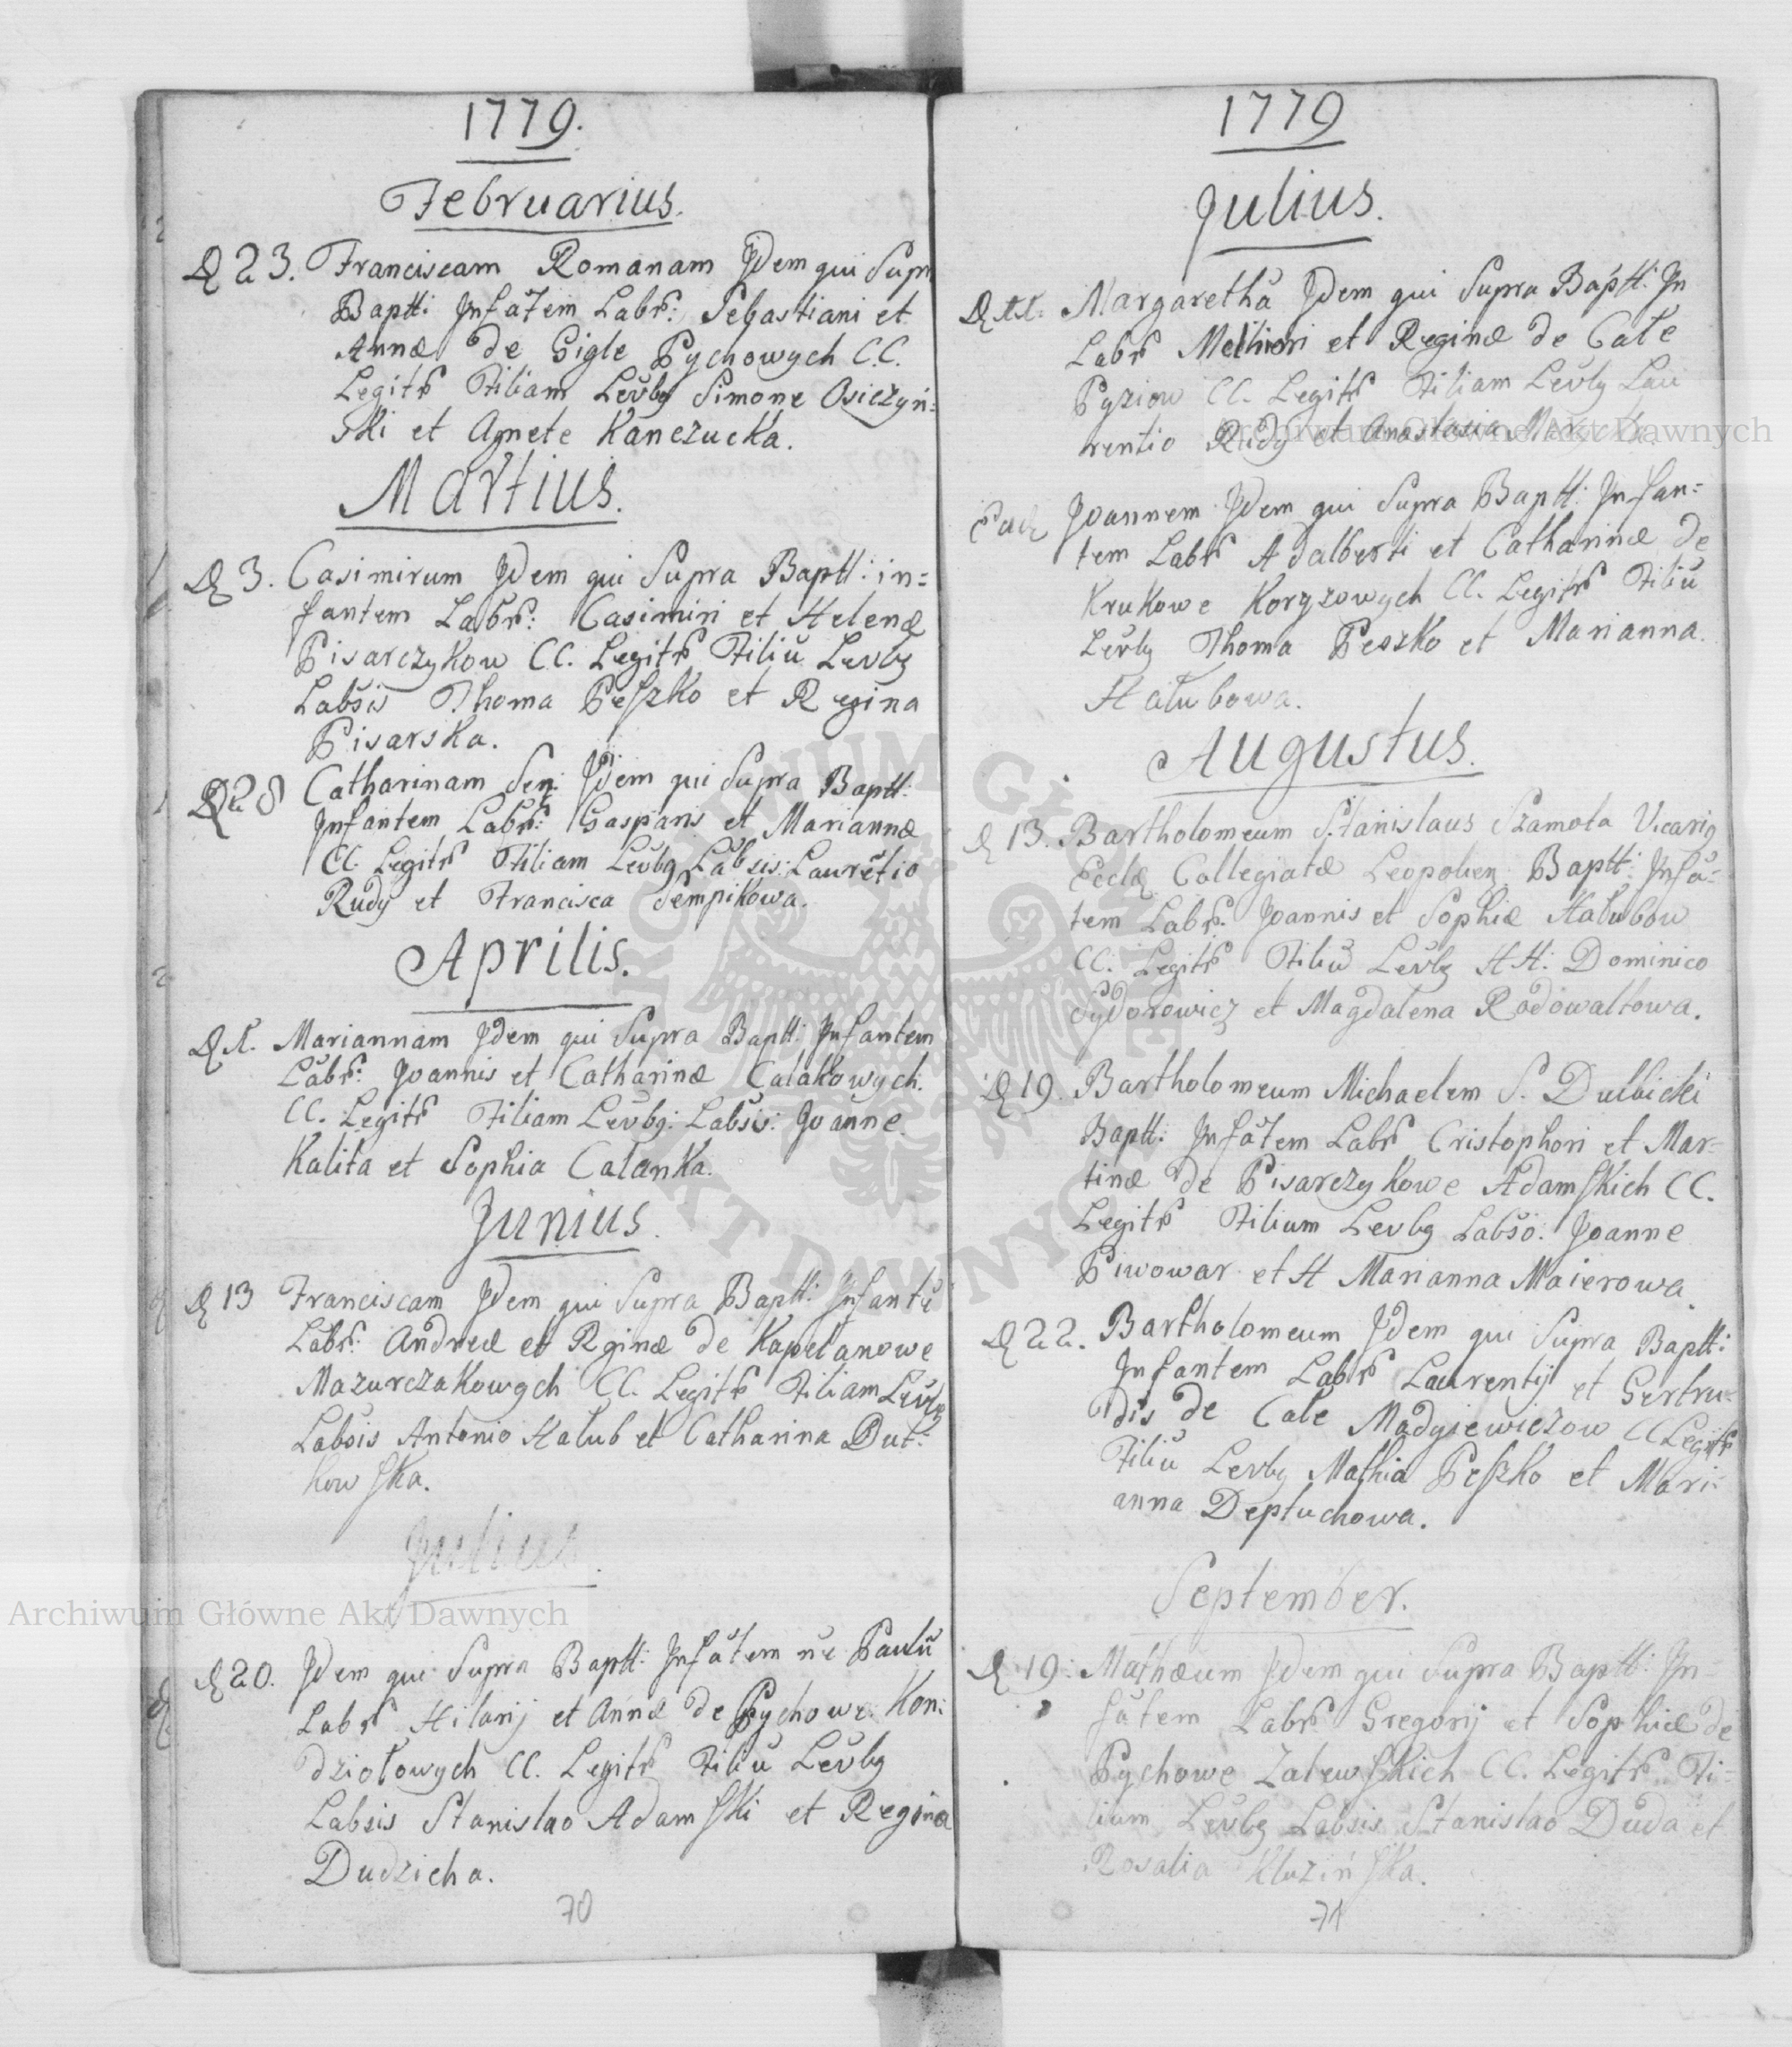 1779.
Februarius.
D 23. Franciscam Romanam Jdem qui Supra
Baptt: Jnfātem Labr: Sebastiani et
Annæ de Gigle Pychowych C.C.
Legitr Filiam Levbg Simone Osiczyń-
ski et Agnete Kanczucka.
Martius.
D 3. Casimirum Jdem qui Supra Baptt: in=
fantem Labr: Casimiri et Helenæ
Pisarczykow CC. Legitr Filiū Levbg
Labsis Thoma Peszko et Regina
Pisarska.
D 28 Catharinam Sen: Jdem qui Supra Baptt:
Jnfantem Labr: Gasparis et Mariannæ
CC. Legitr Filiam Levbg Labsis: Laurētio
Rudy et Francisca Sempikowa.
Aprilis.
D 1. Mariannam Jdem qui Supra Baptt: Jnfantem
Labr: Joannis et Catharinæ Calakowych.
CC. Legitr Filiam Levbg: Labsis: Joanne
Kalita et Sophia Calanka.
Junius.
D 13 Franciscam Jdem qui Supra Baptt: Jnfantē
Labr: Andreæ et Rginæ de Kapelanowe
Mazurczakowych CC. Legitr Filiam Levbg
Labsis Antonio Halub et Catharina Dut:
kowska.
Julius.
D 20. Jdem qui Supra Baptt: Jnfātem nē Paulū
Labr Hilarij et Annæ de Pychowe Kon:
dziołowych CC. Legitr Filiū Levbg
Labsis Stanislao Adamski et Regina
Dudzicha.
70
1779
Julius.
D 11. Margarethā Jdem qui Supra Baptt: Jn
Labr Melhiori et Reginæ de Cale
Pyziow CC. Legitr Filiam Levbg Lau
rentio Rudy et Anastasia
Eade Joannem Jdem qui Supra Baptt: Jnfan=
tem Labr Adalberti et Catharinæ de
Krukowe Koryzowych CC. Legitr Filiū
Levbg Thoma Peszko et Marianna
Halubowa.
Augustus.
D 13. Bartholomeum Stanislaus Szamota Vicarig
Eccłæ Collegiatæ Leopolien Baptt: Jnfā-
tem Labr: Joannis et Sophiæ Halubow
CC. Legitr Filiū Levbg HH: Dominico
Sydorowicz et Magdalena Rodowaltowa.
D 19. Bartholomeum Michaelem S. Dulbicki
Baptt: Jnfātem Labr Cristophori et Mar-
tinæ de Pisarczykowe Adamskich CC.
Legitr Filium Levbg Labso: Joanne
Piwowar et H Marianna Maierowa.
D 22. Bartholomeum Jdem qui Supra Baptt:
Jnfantem Labr Laurentij et Gertru-
dis de Cale Madyjewiczow CC Legitr
Filiū Levbg Mathia Peszko et Mari-
anna Deptuchowa.
September.
D 19: Mathæum Jdem qui Supra Baptt: Jn-
fātem Labr Gregorij et Sophiæ de
Pychowe Zalewskich CC. Legitr Fi-
lium Levbg Labsis Stanislao Duda et
Rosalia Kluzińska.
71
Archiwum Główne Akt Dawnych
Archiwum Główne Akt Dawnych
ARCHIWUM GŁÓWNE AKT DAWNYCH